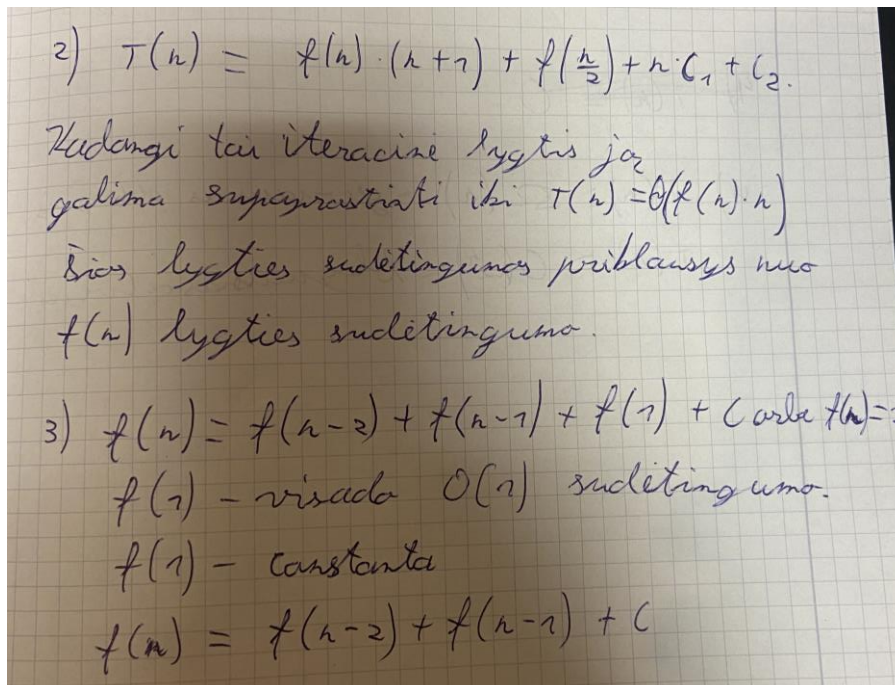 2) T(n) = f(n) · (n+1) + f(n/2) + n·C₁ + C₂.
Kadangi tai iteracinė lygtis ją
galima supaprastinti iki T(n) = Θ(f(n)·n)
Šios lygties sudėtingumas priklausys nuo
f(n) lygties sudėtingumo.
3) f(n) = f(n-2) + f(n-1) + f(1) + C arba f(n)=
f(1) – visada O(1) sudėtingumo.
f(1) – constanta
f(n) = f(n-2) + f(n-1) + C